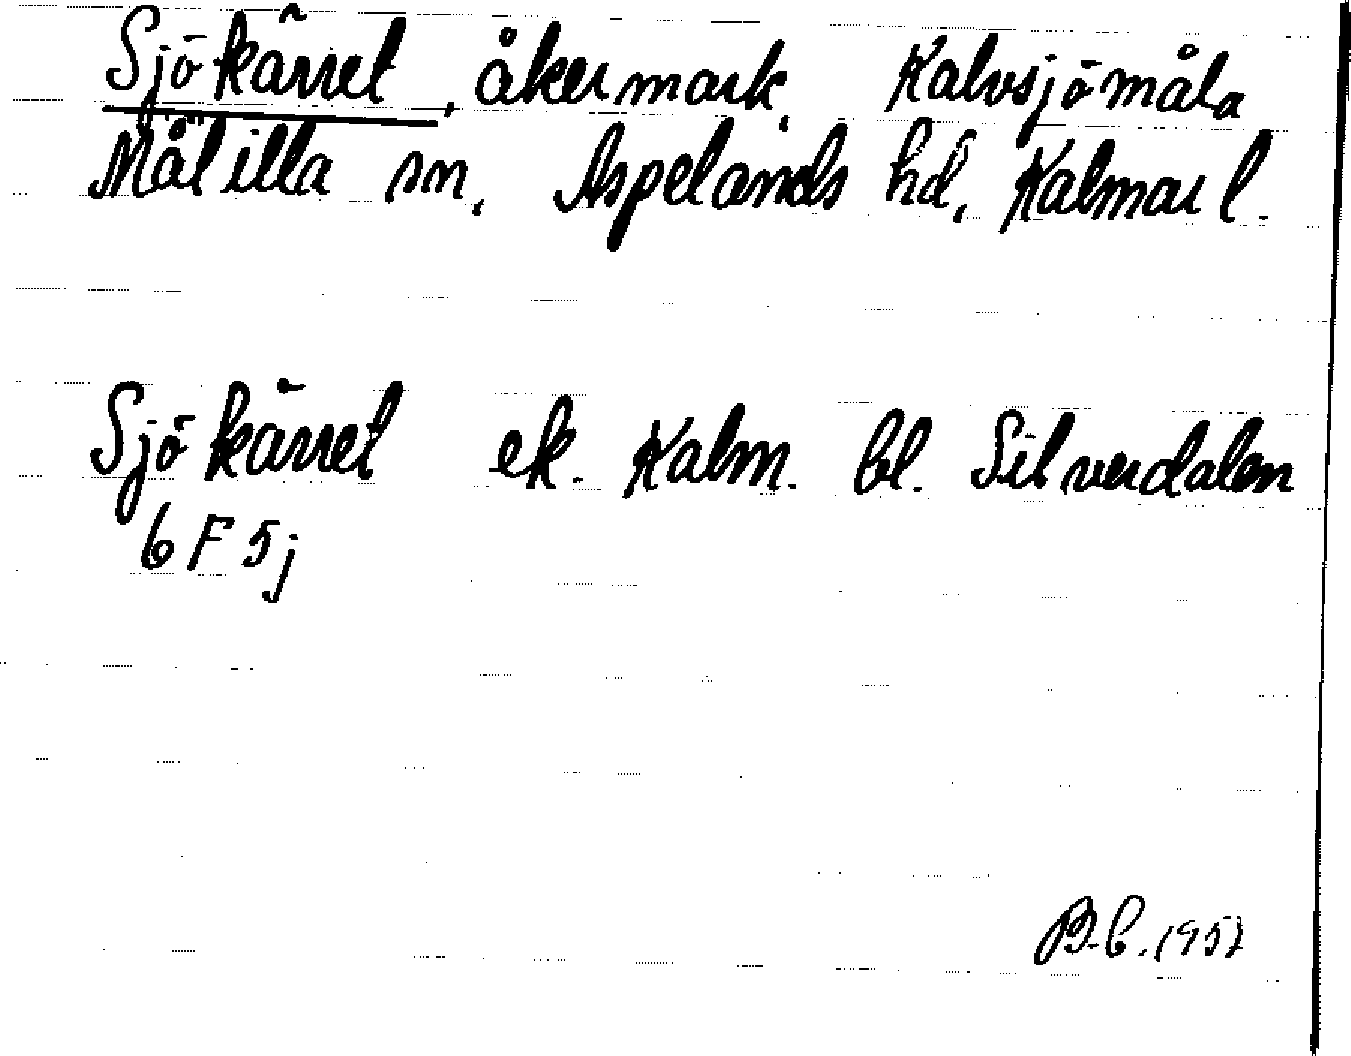 Sjökärret, åkermark, Kalvsjömåla
Målilla sn, Aspelands hd, Kalmar l.
Sjökärret ek. Kalm. bl. Silverdalen
6 F 5j
B.C. 1957